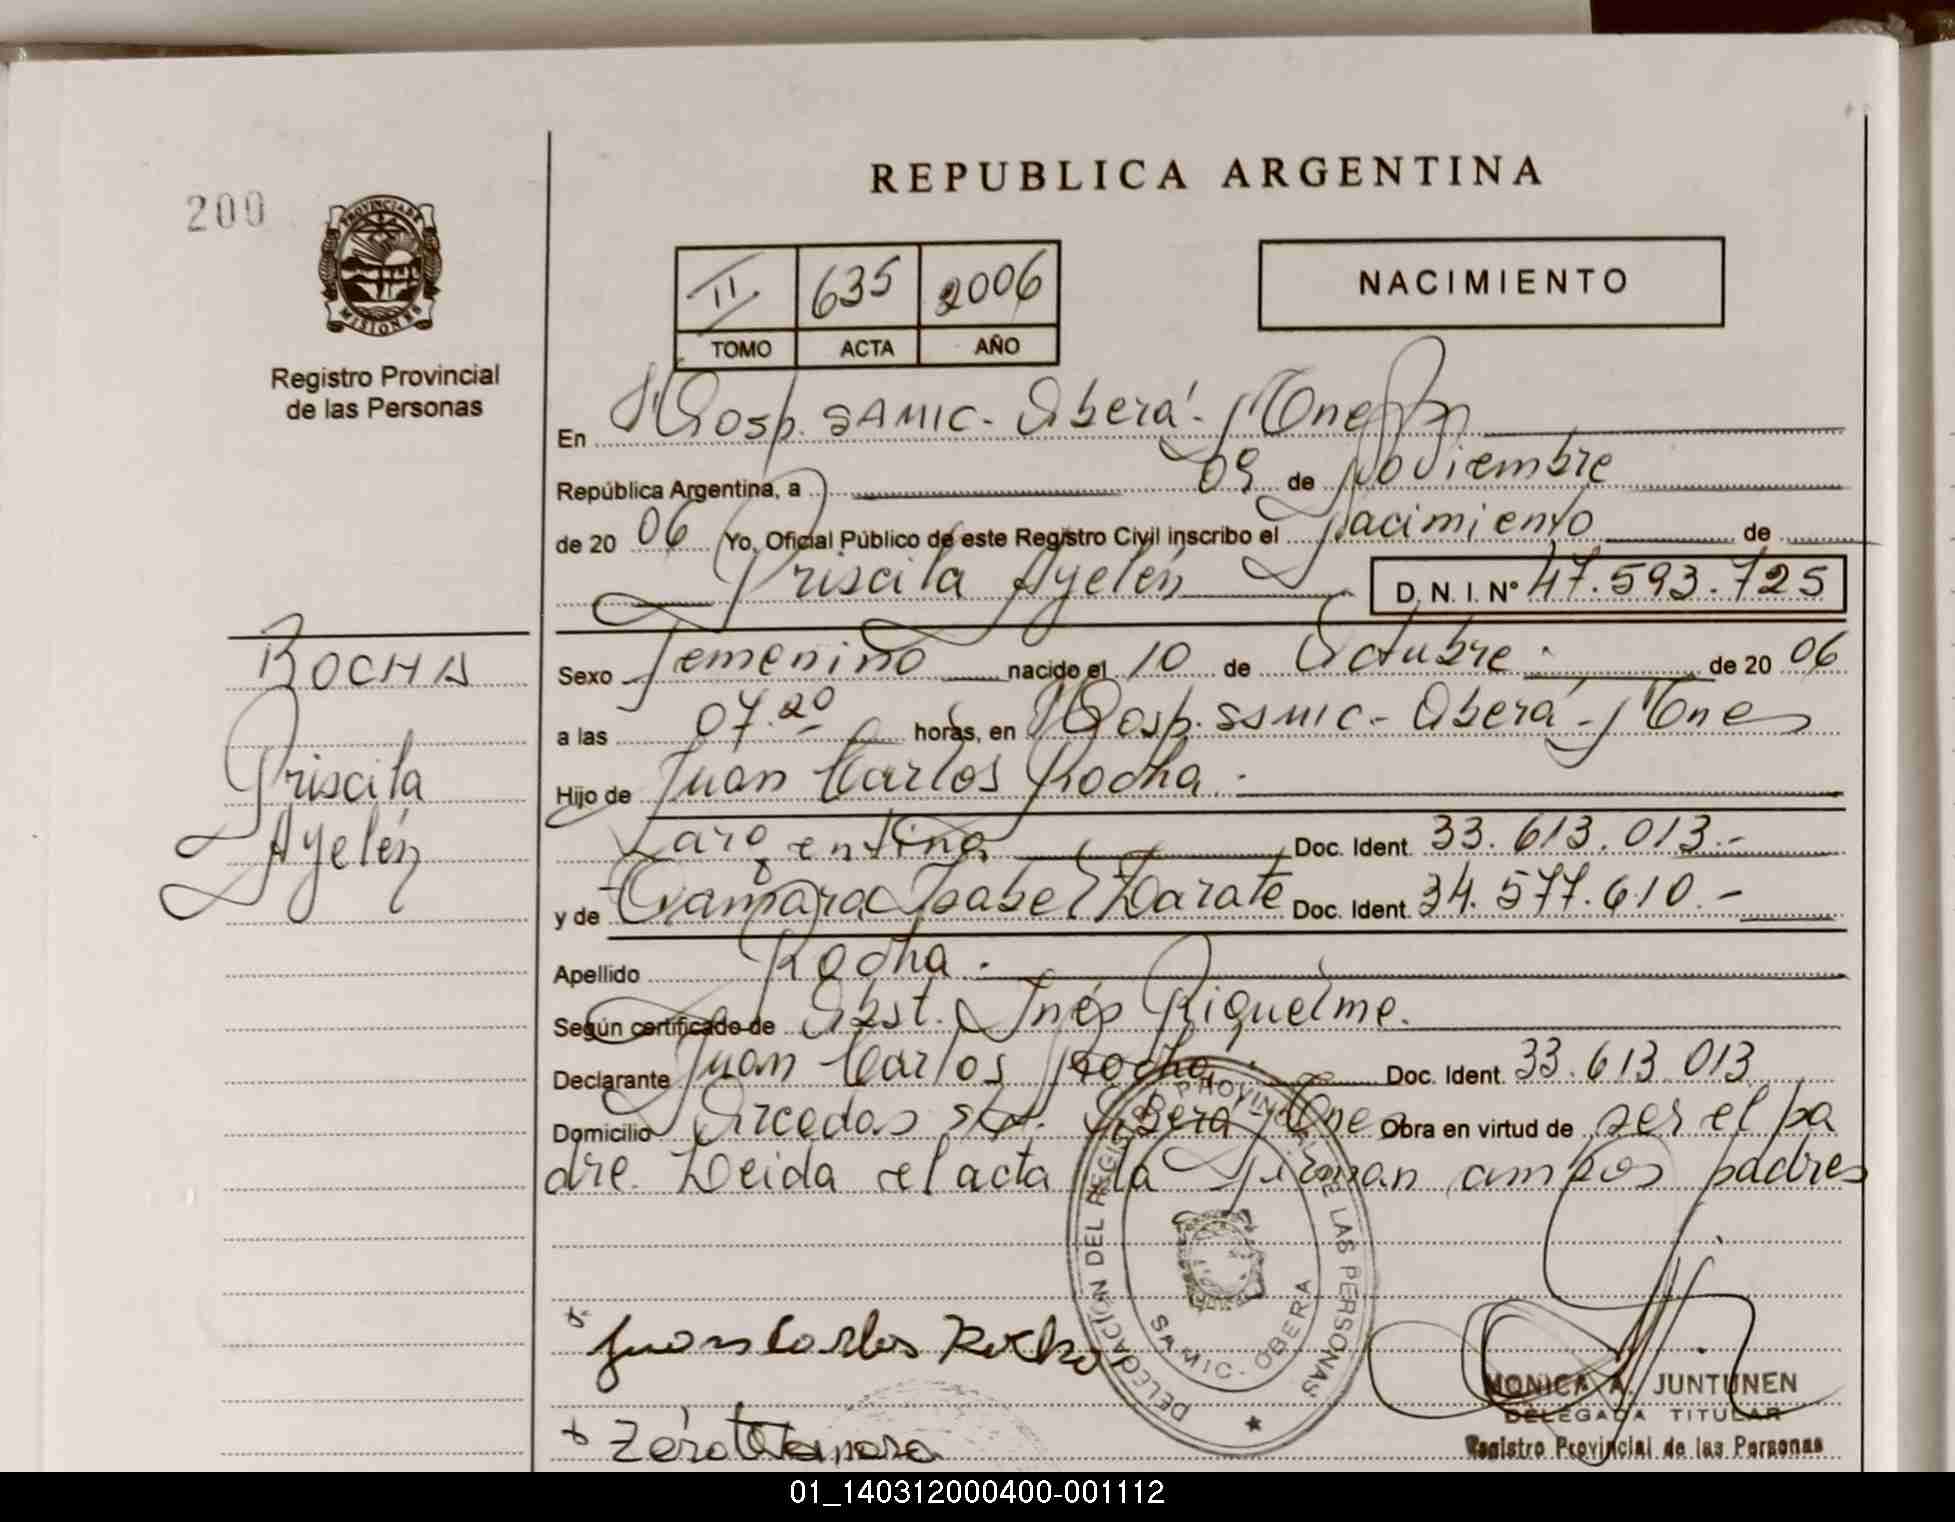 REPUBLICA ARGENTINA
200
PROVINCIA DE
MISIONES
Registro Provincial
de las Personas
II 635 2006
TOMO ACTA AÑO
NACIMIENTO
En Hosp. SAMIC - Oberá - Mnes
República Argentina, a 09 de Noviembre
de 20 06 Yo, Oficial Público de este Registro Civil inscribo el Nacimiento de
Priscila Ayelén D. N. I. N° 47.593.725
ROCHA
Priscila
Ayelén
Sexo Femenino nacido el 10 de Octubre de 20 06
a las 07.20 horas, en Hosp. SAMIC - Oberá - Mnes
Hijo de Juan Carlos Rocha.
argentina Doc. Ident. 33.613.013.-
y de Tamara Isabel Zarate Doc. Ident. 34.577.610.-
Apellido Rocha.
Según certificado de Obst. Inés Riquelme.
Declarante Juan Carlos Rocha. Doc. Ident. 33.613.013
Domicilio Oberá Mnes Obra en virtud de ser el pa
dre. Leida el acta la firman ambos padres
DELEGACIÓN DEL REGISTRO PROVINCIAL DE LAS PERSONAS
SAMIC - OBERA
Juan Carlos Rocha
Zárate Tamara
MONICA A. JUNTUNEN
DELEGADA TITULAR
Registro Provincial de las Personas
01_140312000400-001112